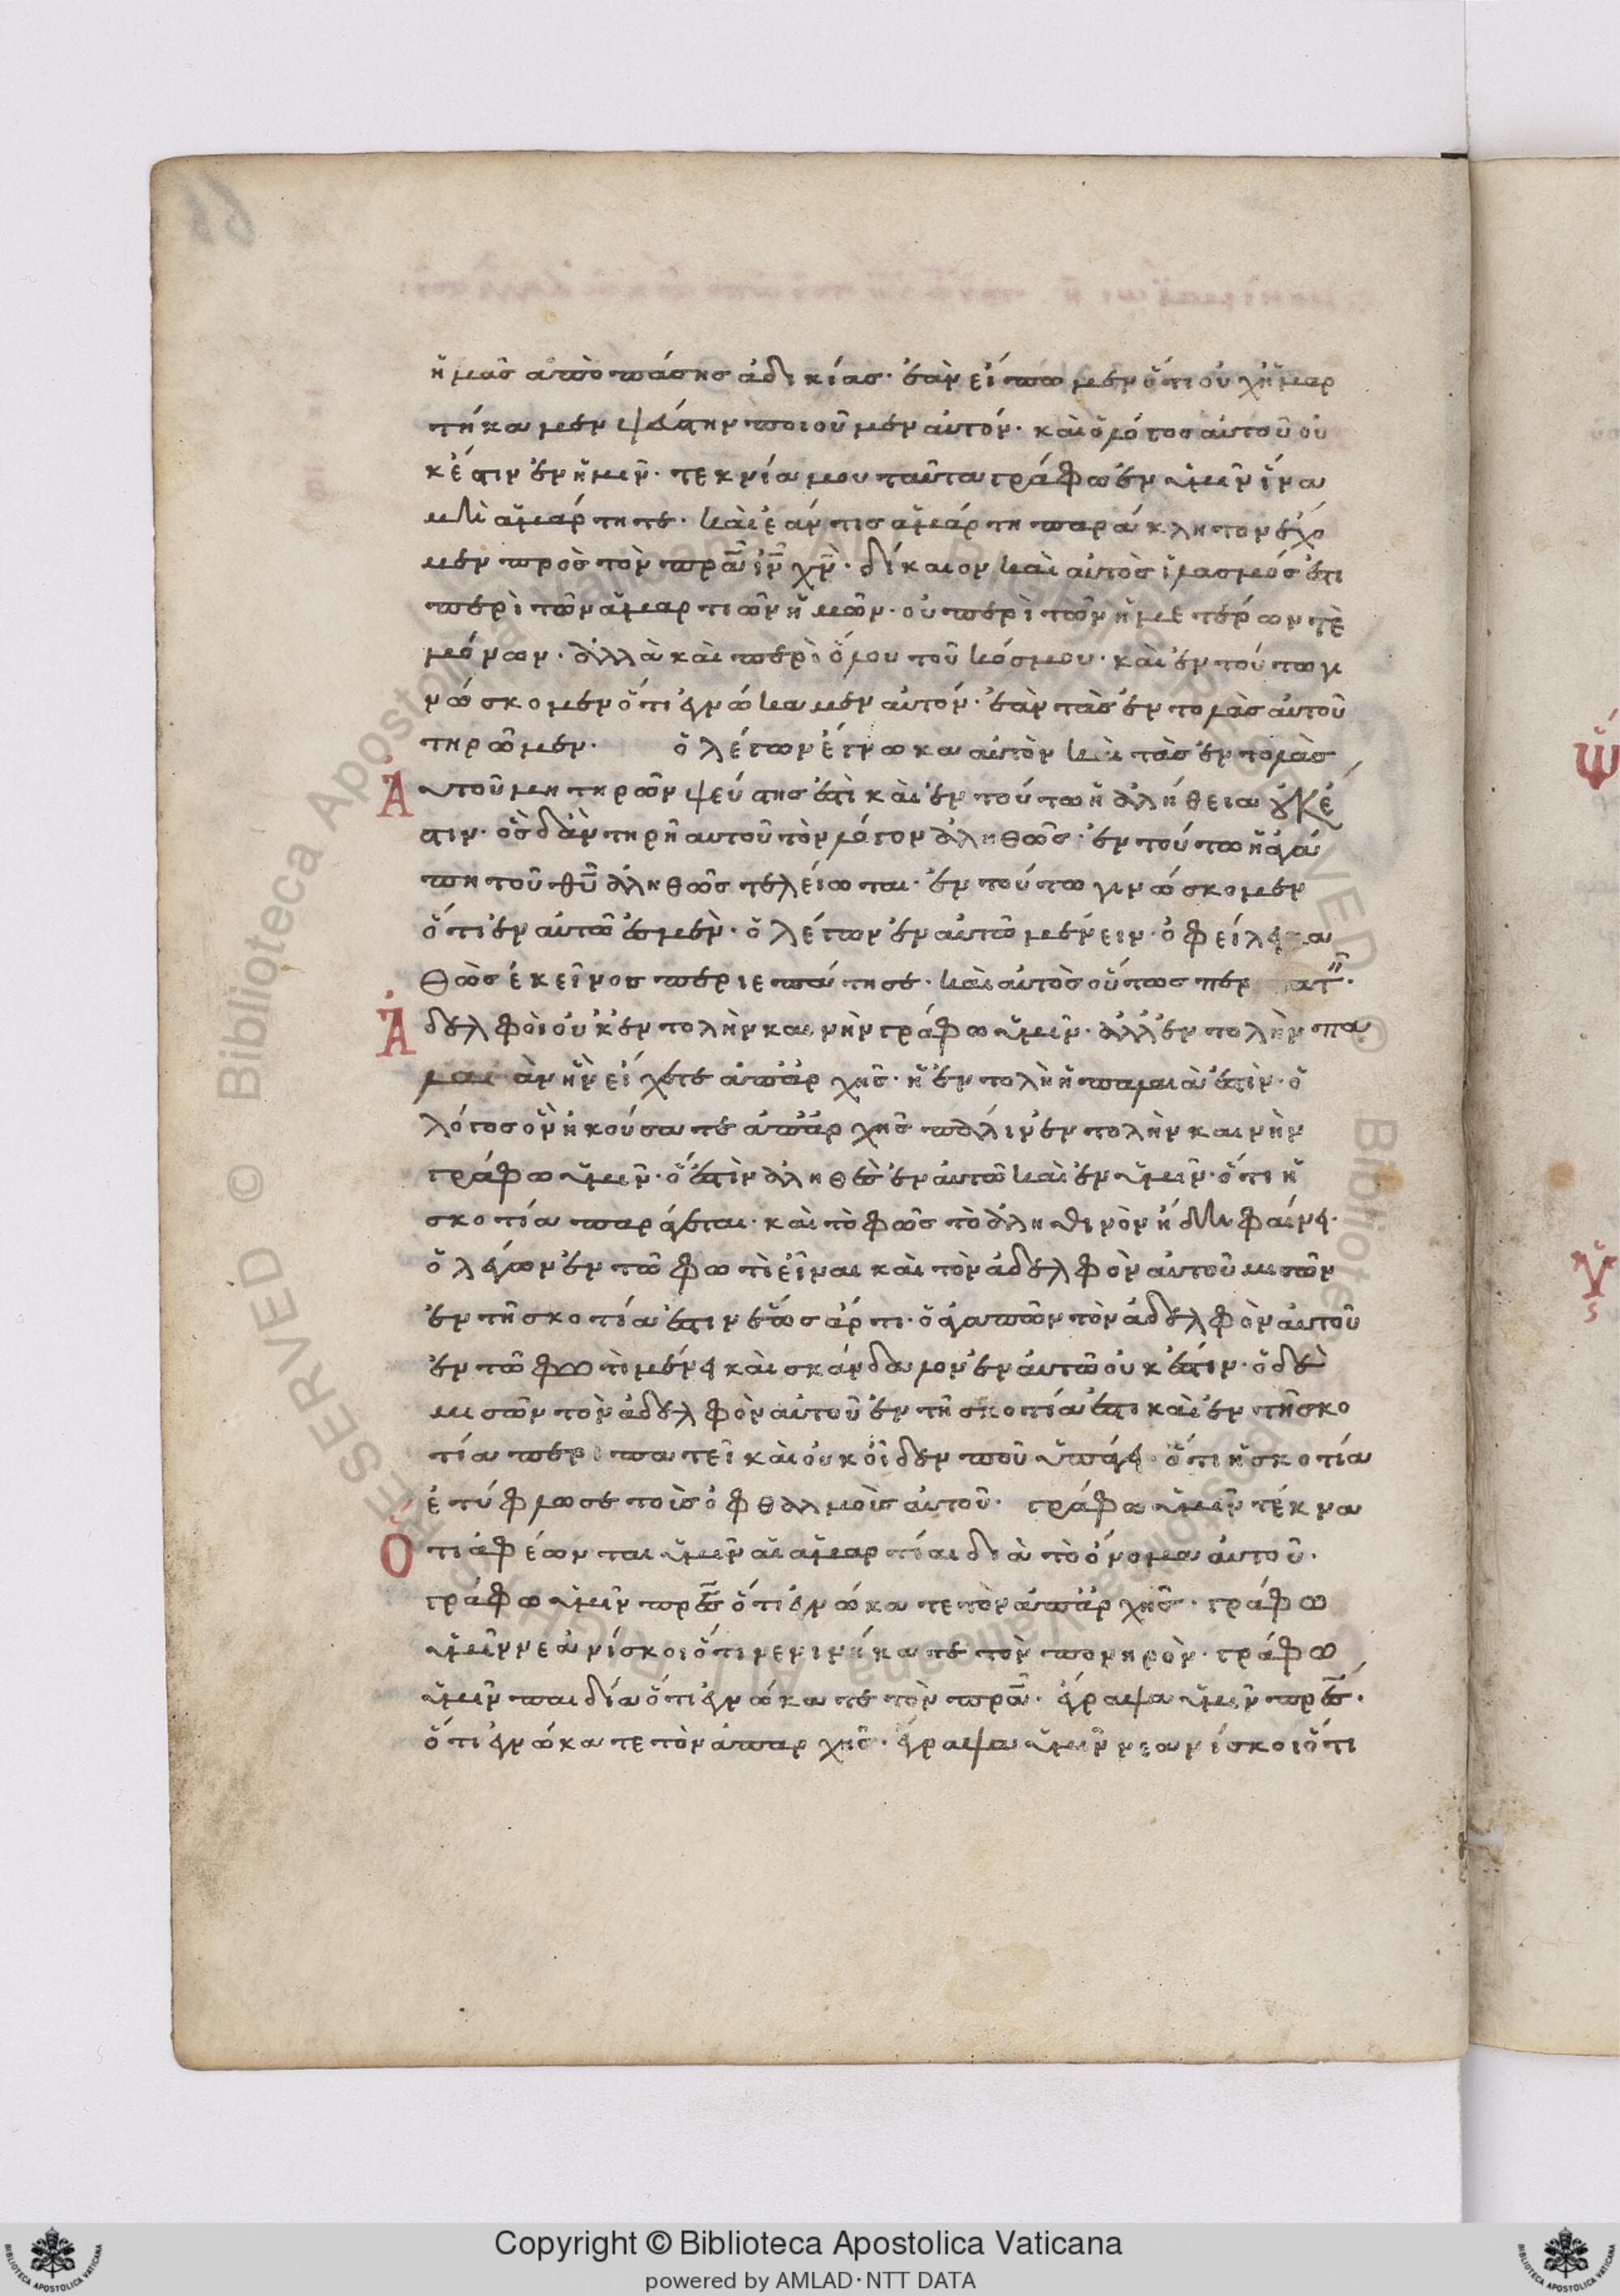 ἡμᾶς ἀπὸ πάσης ἀδικίας· ἐὰν εἴπωμεν ὅτι οὐχ ἡμαρ
τήκαμεν ψεύστην ποιοῦμεν αὐτόν· καὶ ὁ λόγος αὐτοῦ οὐ
κ ἔστιν ἐν ἡμῖν· τεκνία μου ταῦτα γράφω ἐν ὑμῖν ἵνα
μὴ ἁμάρτητε· καὶ ἐάν τις ἁμάρτη παράκλητον ἔχο
μεν πρὸς τὸν πρ̅α ι̅ν χ̅ν· δίκαιον καὶ αὐτὸς ἱλασμός ἐστι
περὶ τῶν ἁμαρτιῶν ἡμῶν· οὐ περὶ τῶν ἡμετέρων δὲ
μόνων· ἀλλὰ καὶ περὶ ὅλου τοῦ κόσμου· καὶ ἐν τούτω γι
νώσκομεν ὅτι ἐγνώκαμεν αὐτόν· ἐὰν τὰς ἐντολὰς αὐτοῦ
τηρῶμεν· ὁ λέγων ἔγνωκα αὐτὸν καὶ τὰς ἐντολὰς
Ἀυτοῦ μη τηρῶν ψεύστης ἐστὶ καὶ ἐν τούτω ἡ ἀλήθεια οὐκ έ
στιν· ὃς δ ἂν τηρῆ αυτοῦ τὸν λόγον ἀληθῶς· ἐν τούτω ἡ ἀγά
πη τοῦ θ̅υ ἀληθῶς τελείωται· ἐν τούτω γινώσκομεν
ὅτι ἐν αὐτῶ ἐσμέν· ὁ λέγων ἐν αυτῶ μένειν· ὀφείλει κα
θὼς ἐκεῖνος περιεπάτησε· καὶ αὐτὸς οὕτως περ πατ·
Ἀδελφοὶ οὐκ ἐντολὴν καινὴν γράφω ὑμῖν· ἀλλ ἐντολὴν πα
λαιὰν ἣν είχετε ἀπ ἀρχῆς· ἡ ἐντολὴ ἡ παλαιὰ ἐστὶν· ὁ
λόγος ὃν ἠκούσατε ἀπ ἀρχῆς πάλιν ἐντολὴν καινὴν
γράφω ὑμῖν· ὅ ἐστὶν ἀληθὲς ἐν αὐτῶ καὶ ἐν ὑμῖν· ὅτι ἡ
σκοτία παράγεται· καὶ τὸ φῶς τὸ ἀληθινὸν ἤδη φαίνει·
ὁ λέγων ἐν τῶ φωτὶ εἶναι καὶ τὸν ἀδελφὸν αὐτοῦ μισῶν
ἐν τῆ σκοτία ἐστιν ἕως ἄρτι· ὁ ἀγαπῶν τὸν ἀδελφὸν αὐτοῦ
ἐν τῶ φωτὶ μένει καὶ σκάνδαλον ἐν αὐτῶ οὐκ ἔστιν· ὁ δὲ
μισῶν τὸν ἀδελφὸν αὐτοῦ ἐν τῆ σκοτία ἐστι καὶ ἐν τῆ σκο
τία περιπατεῖ καὶ οὐκ οἶδεν ποῦ ὑπάγει· ὅτι ἡ σκοτία
ἐτύφλωσε τοὺς ὀφθαλμοὺς αὐτοῦ· γράφω ὑμῖν τέκνα
Ὅτι ἀφέωνται ὑμῖν αἱ ἁμαρτίαι διὰ τὸ ὄνομα αὐτοῦ·
γράφω ὑμῖν πρ̅ες ὅτι ἐγνώκατε τὸν ἀπ ἀρχῆς· γράφω
ὑμῖν νεανίσκοι ὅτι νενικήκατε τὸν πονηρὸν· γράφω
ὑμῖν παιδία ὅτι ἐγνώκατε τὸν πρ̅α· ἔγραψα ὑμῖν πρ̅ες·
ὅτι ἐγνώκατε τὸν ἀπαρχῆς· ἔγραψα ὑμῖν νεανίσκοι ὅτι
Copyright © Biblioteca Apostolica Vaticana
powered by AMLAD·NTT DATA